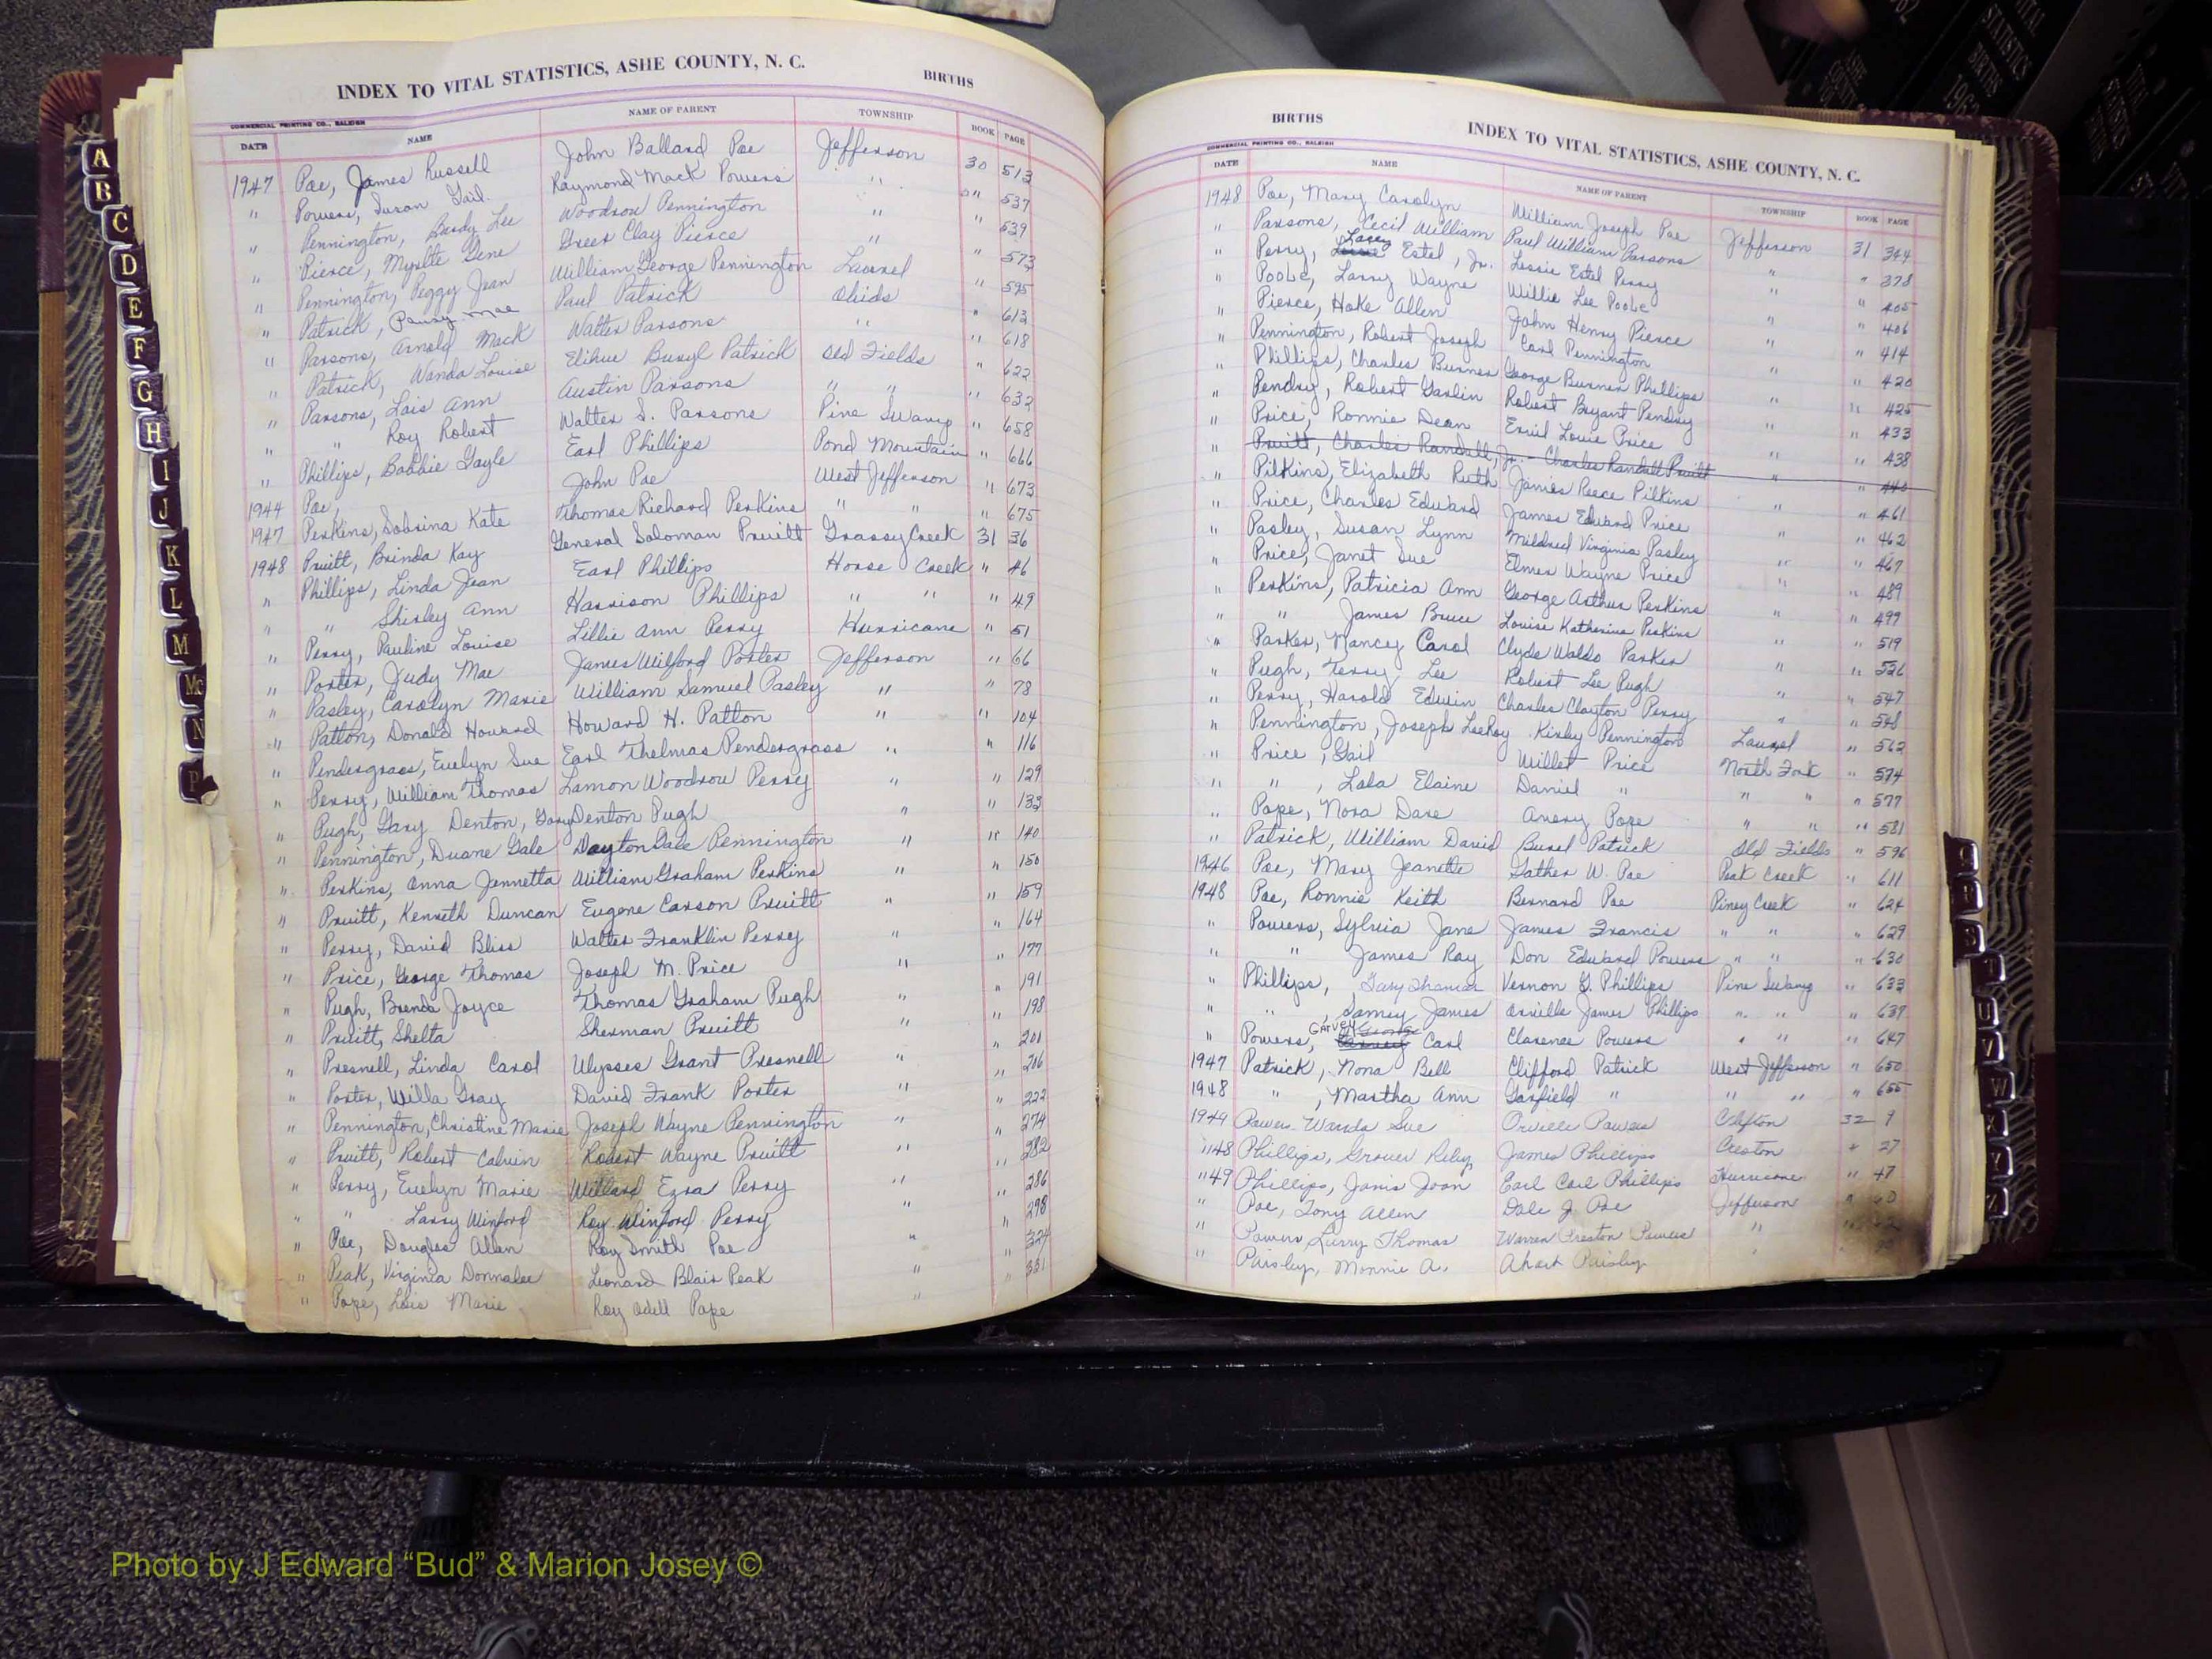 INDEX TO VITAL STATISTICS, ASHE COUNTY, N. C. BIRTHS
COMMERCIAL PRINTING CO., RALEIGH
DATE NAME NAME OF PARENT TOWNSHIP BOOK PAGE
1947 Poe, James Russell John Ballard Poe Jefferson 30 513
" Powers, Susan Gail Raymond Mack Powers " " 537
" Pennington, Lee Woodrow Pennington " " 539
" Pierce, Gene Greer Clay Pierce " " 573
" Pennington, Peggy Jean William George Pennington Laurel " 595
" Patrick, Mae Paul Patrick Obids " 613
" Parsons, Arnold Mack Walter Parsons " " 618
" Patrick, Wanda Louise Elihue Buryl Patrick Old Fields " 622
" Parsons, Lois Ann Austin Parsons " " " 632
" " Roy Robert Walter S. Parsons Pine Swamp " 658
" Phillips, Bobbie Gayle Earl Phillips Pond Mountain " 666
1944 Poe, John Poe West Jefferson " 673
1947 Perkins, Sabrina Kate Thomas Richard Perkins " " " 675
1948 Pruitt, Brinda Kay General Soloman Pruitt Grassy Creek 31 36
" Phillips, Linda Jean Earl Phillips Horse Creek " 46
" " Shirley Ann Harrison Phillips " " " 49
" Perry, Pauline Louise Lillie Ann Perry Hurricane " 51
" Porter, Judy Mae James Wilford Porter Jefferson " 66
" Pasley, Carolyn Marie William Samuel Pasley " " 78
" Patton, Donald Howard Howard H. Patton " " 104
" Pendergrass, Evelyn Sue Earl Thelmas Pendergrass " " 116
" Perry, William Thomas Lamon Woodrow Perry " " 129
" Pugh, Gary Denton, Gary Denton Pugh " " 133
" Pennington, Duane Gale Dayton Gale Pennington " " 140
" Perkins, Anna Jennetta William Graham Perkins " " 150
" Pruitt, Kenneth Duncan Eugene Carson Pruitt " " 159
" Perry, David Bliss Walter Franklin Perry " " 164
" Price, George Thomas Joseph M. Price " " 177
" Pugh, Brenda Joyce Thomas Graham Pugh " " 191
" Pruitt, Shelta Sherman Pruitt " " 198
" Presnell, Linda Carol Ulysses Grant Presnell " " 201
" Porter, Willa Gray David Frank Porter " " 216
" Pennington, Christine Marie Joseph Wayne Pennington " " 222
" Pruitt, Robert Calvin Robert Wayne Pruitt " " 274
" Perry, Evelyn Marie Willard Ezra Perry " " 282
" " Larry Winford Roy Winford Perry " " 286
" Poe, Douglas Allen Roy Smith Poe " " 298
" Peak, Virginia Donnalee Leonard Blair Peak " " 324
" Pope, Lois Marie Roy Odell Pope " " 331
BIRTHS INDEX TO VITAL STATISTICS, ASHE COUNTY, N. C.
COMMERCIAL PRINTING CO., RALEIGH
DATE NAME NAME OF PARENT TOWNSHIP BOOK PAGE
1948 Poe, Mary Carolyn William Joseph Poe Jefferson 31 344
" Parsons, Cecil William Paul William Parsons " " 378
" Perry, Lacey Estel, Jr. Lessie Estel Perry " " 405
" Poole, Larry Wayne Willie Lee Poole " " 406
" Pierce, Hoke Allen John Henry Pierce " " 414
" Pennington, Robert Joseph Carl Pennington " " 420
" Phillips, Charles Burner George Burner Phillips " " 425
" Pendry, Robert Garlin Robert Bryant Pendry " " 433
" Price, Ronnie Dean Ervil Louie Price " " 438
" Pruitt, Charles Randall, Jr. - Charles Randall Pruitt " " 440
" Pilkins, Elizabeth Ruth James Reece Pilkins " " 461
" Price, Charles Edward James Edward Price " " 462
" Pasley, Susan Lynn Mildred Virginia Pasley " " 467
" Price, Janet Sue Elmer Wayne Price " " 489
" Perkins, Patricia Ann George Arthur Perkins " " 499
" " James Bruce Louise Katherine Perkins " " 519
" Parker, Nancy Carol Clyde Waldo Parker " " 526
" Pugh, Terry Lee Robert Lee Pugh " " 547
" Perry, Harold Edwin Charles Clayton Perry " " 548
" Pennington, Joseph LeeRoy Kirby Pennington Laurel " 562
" Price, Gail Willet Price North Fork " 574
" " , Lola Elaine Daniel " " " " 577
" Pope, Nora Dare Avery Pope " " " 581
" Patrick, William David Burel Patrick Old Fields " 596
1946 Poe, Mary Jeanette Gather W. Poe Peak Creek " 611
1948 Poe, Ronnie Keith Bernard Poe Piney Creek " 624
" Powers, Sylvia Jane James Francis " " " 629
" " James Ray Don Edward Powers " " " 630
" Phillips, Gary Thomas Vernon G. Phillips Pine Swamp " 633
" " , James Orville James Phillips " " " 639
" Powers, Garvey Carl Clarence Powers " " " 647
1947 Patrick, Nona Bell Clifford Patrick West Jefferson " 650
1948 " , Martha Ann Garfield " " " " 655
1949 Powers Wanda Sue Orville Powers Clifton 32 9
" 48 Phillips, Grover Riley James Phillips Creston " 27
" 49 Phillips, Janis Joan Earl Carl Phillips Hurricane " 47
" Poe, Tony Allen Dale J. Poe Jefferson " 60
" Powers Larry Thomas Warren Preston Powers "
" Paisley, Monnie A. Ahart Paisley
A
B
C
D
E
F
G
H
I
J
K
L
M
Mc
N
P
T
U
V
W
X
Y
Z
VITAL STATISTICS BIRTHS
ASHE COUNTY
Photo by J Edward “Bud” & Marion Josey ©